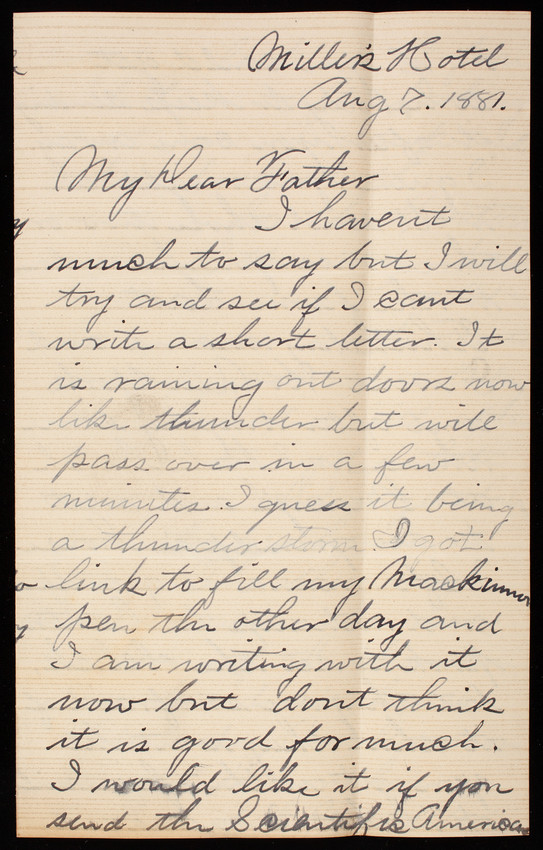 Miller's Hotel
Aug 7. 1881.
My Dear Father
I havent
much to say but I will
try and see if I cant
write a short letter. It
is raining out doors now
like thunder but will
pass over in a few
minutes I guess it being
a thunder storm. I got
ink to fill my Mackinnon
pen the other day and
I am writing with it
now but dont think
it is good for much.
I would like it if you
send the Scientific American